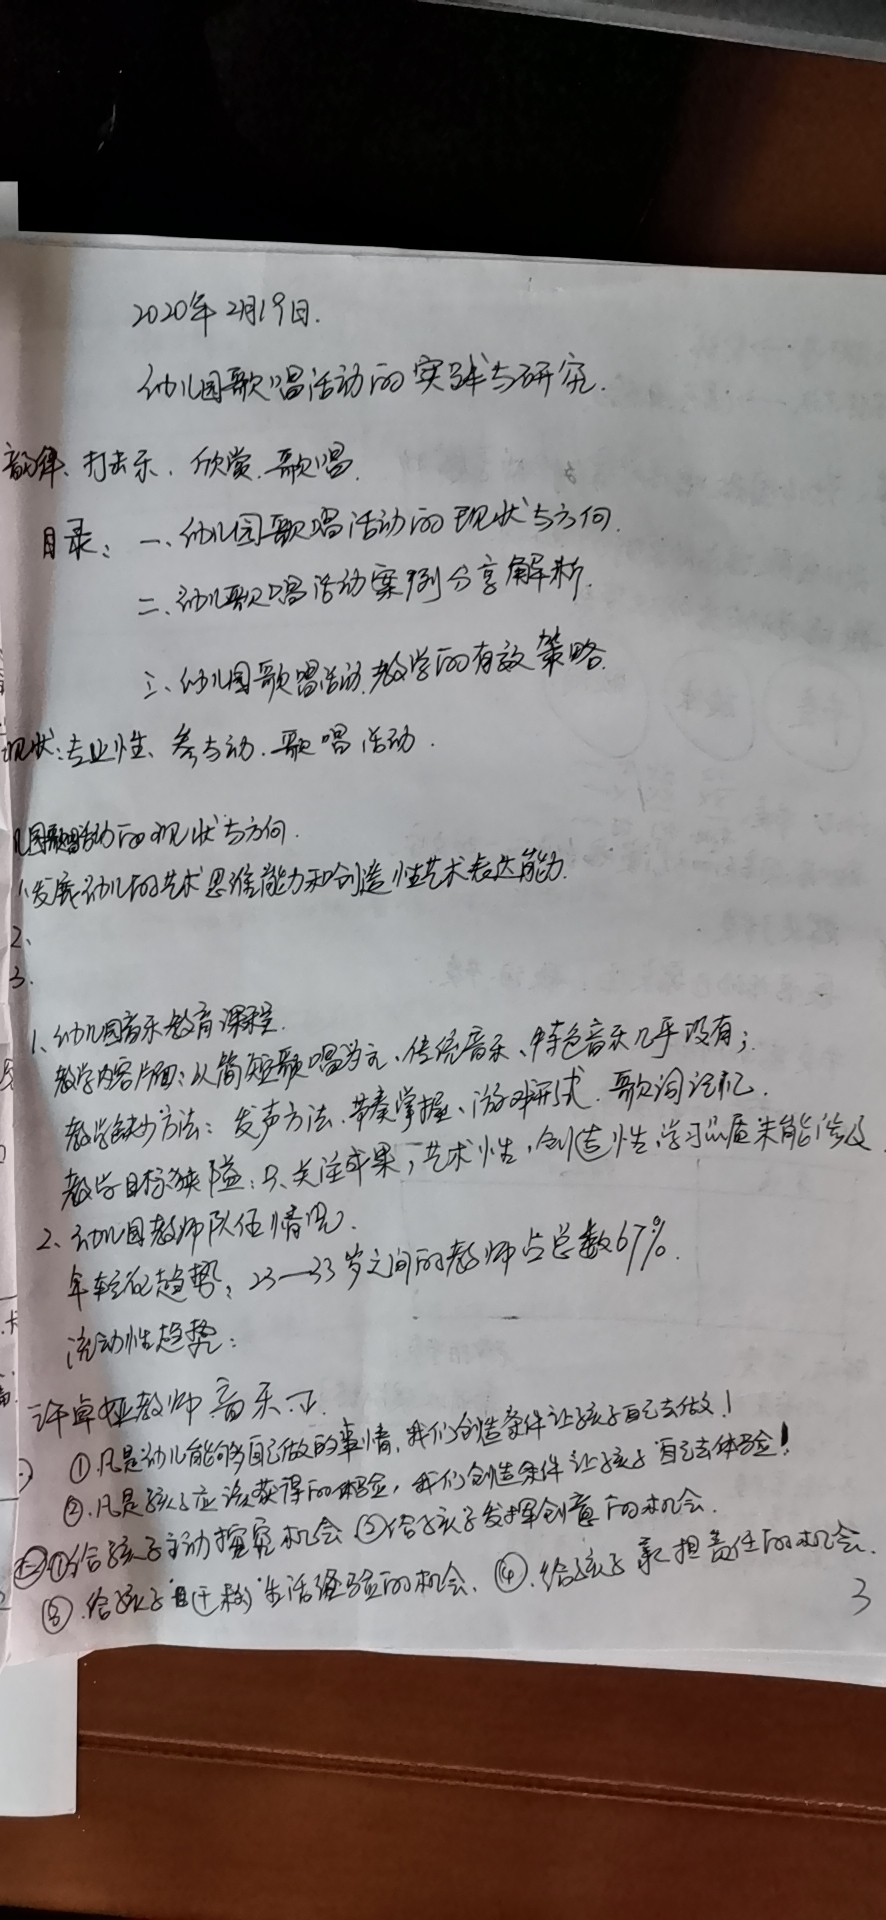 2020年2月19日.
幼儿园歌唱活动的实践与研究.
韵律、打击乐、欣赏、歌唱.
目录：一、幼儿园歌唱活动的现状与方向.
二、幼儿歌唱活动案例分享解析.
三、幼儿园歌唱活动教学的有效策略.
现状：专业性、参与动、歌唱活动.
儿园歌唱活动的现状与方向.
1、发展幼儿的艺术思维能力和创造性艺术表达能力.
2、
3.
1、幼儿园音乐教育课程.
教学内容片面：以简短歌唱为主、传统音乐、特色音乐几乎没有；
教学缺少方法：发声方法、节奏掌握、游戏形式、歌词记忆.
教学目标狭隘：只关注结果，艺术性，创造性，学习品质未能涉及.
2、幼儿园教师队伍情况.
年轻化趋势：23—33岁之间的教师占总数67%.
流动性趋势：
许卓娅教师 音乐
①.凡是幼儿能够自己做的事情，我们创造条件让孩子自己去做！
②.凡是孩子应该获得的体验，我们创造条件让孩子自己去体验！
㊁①给孩子主动探究机会 ②给孩子发挥创意的机会.
③.给孩子生活经验的机会、④.给孩子承担责任的机会.
3